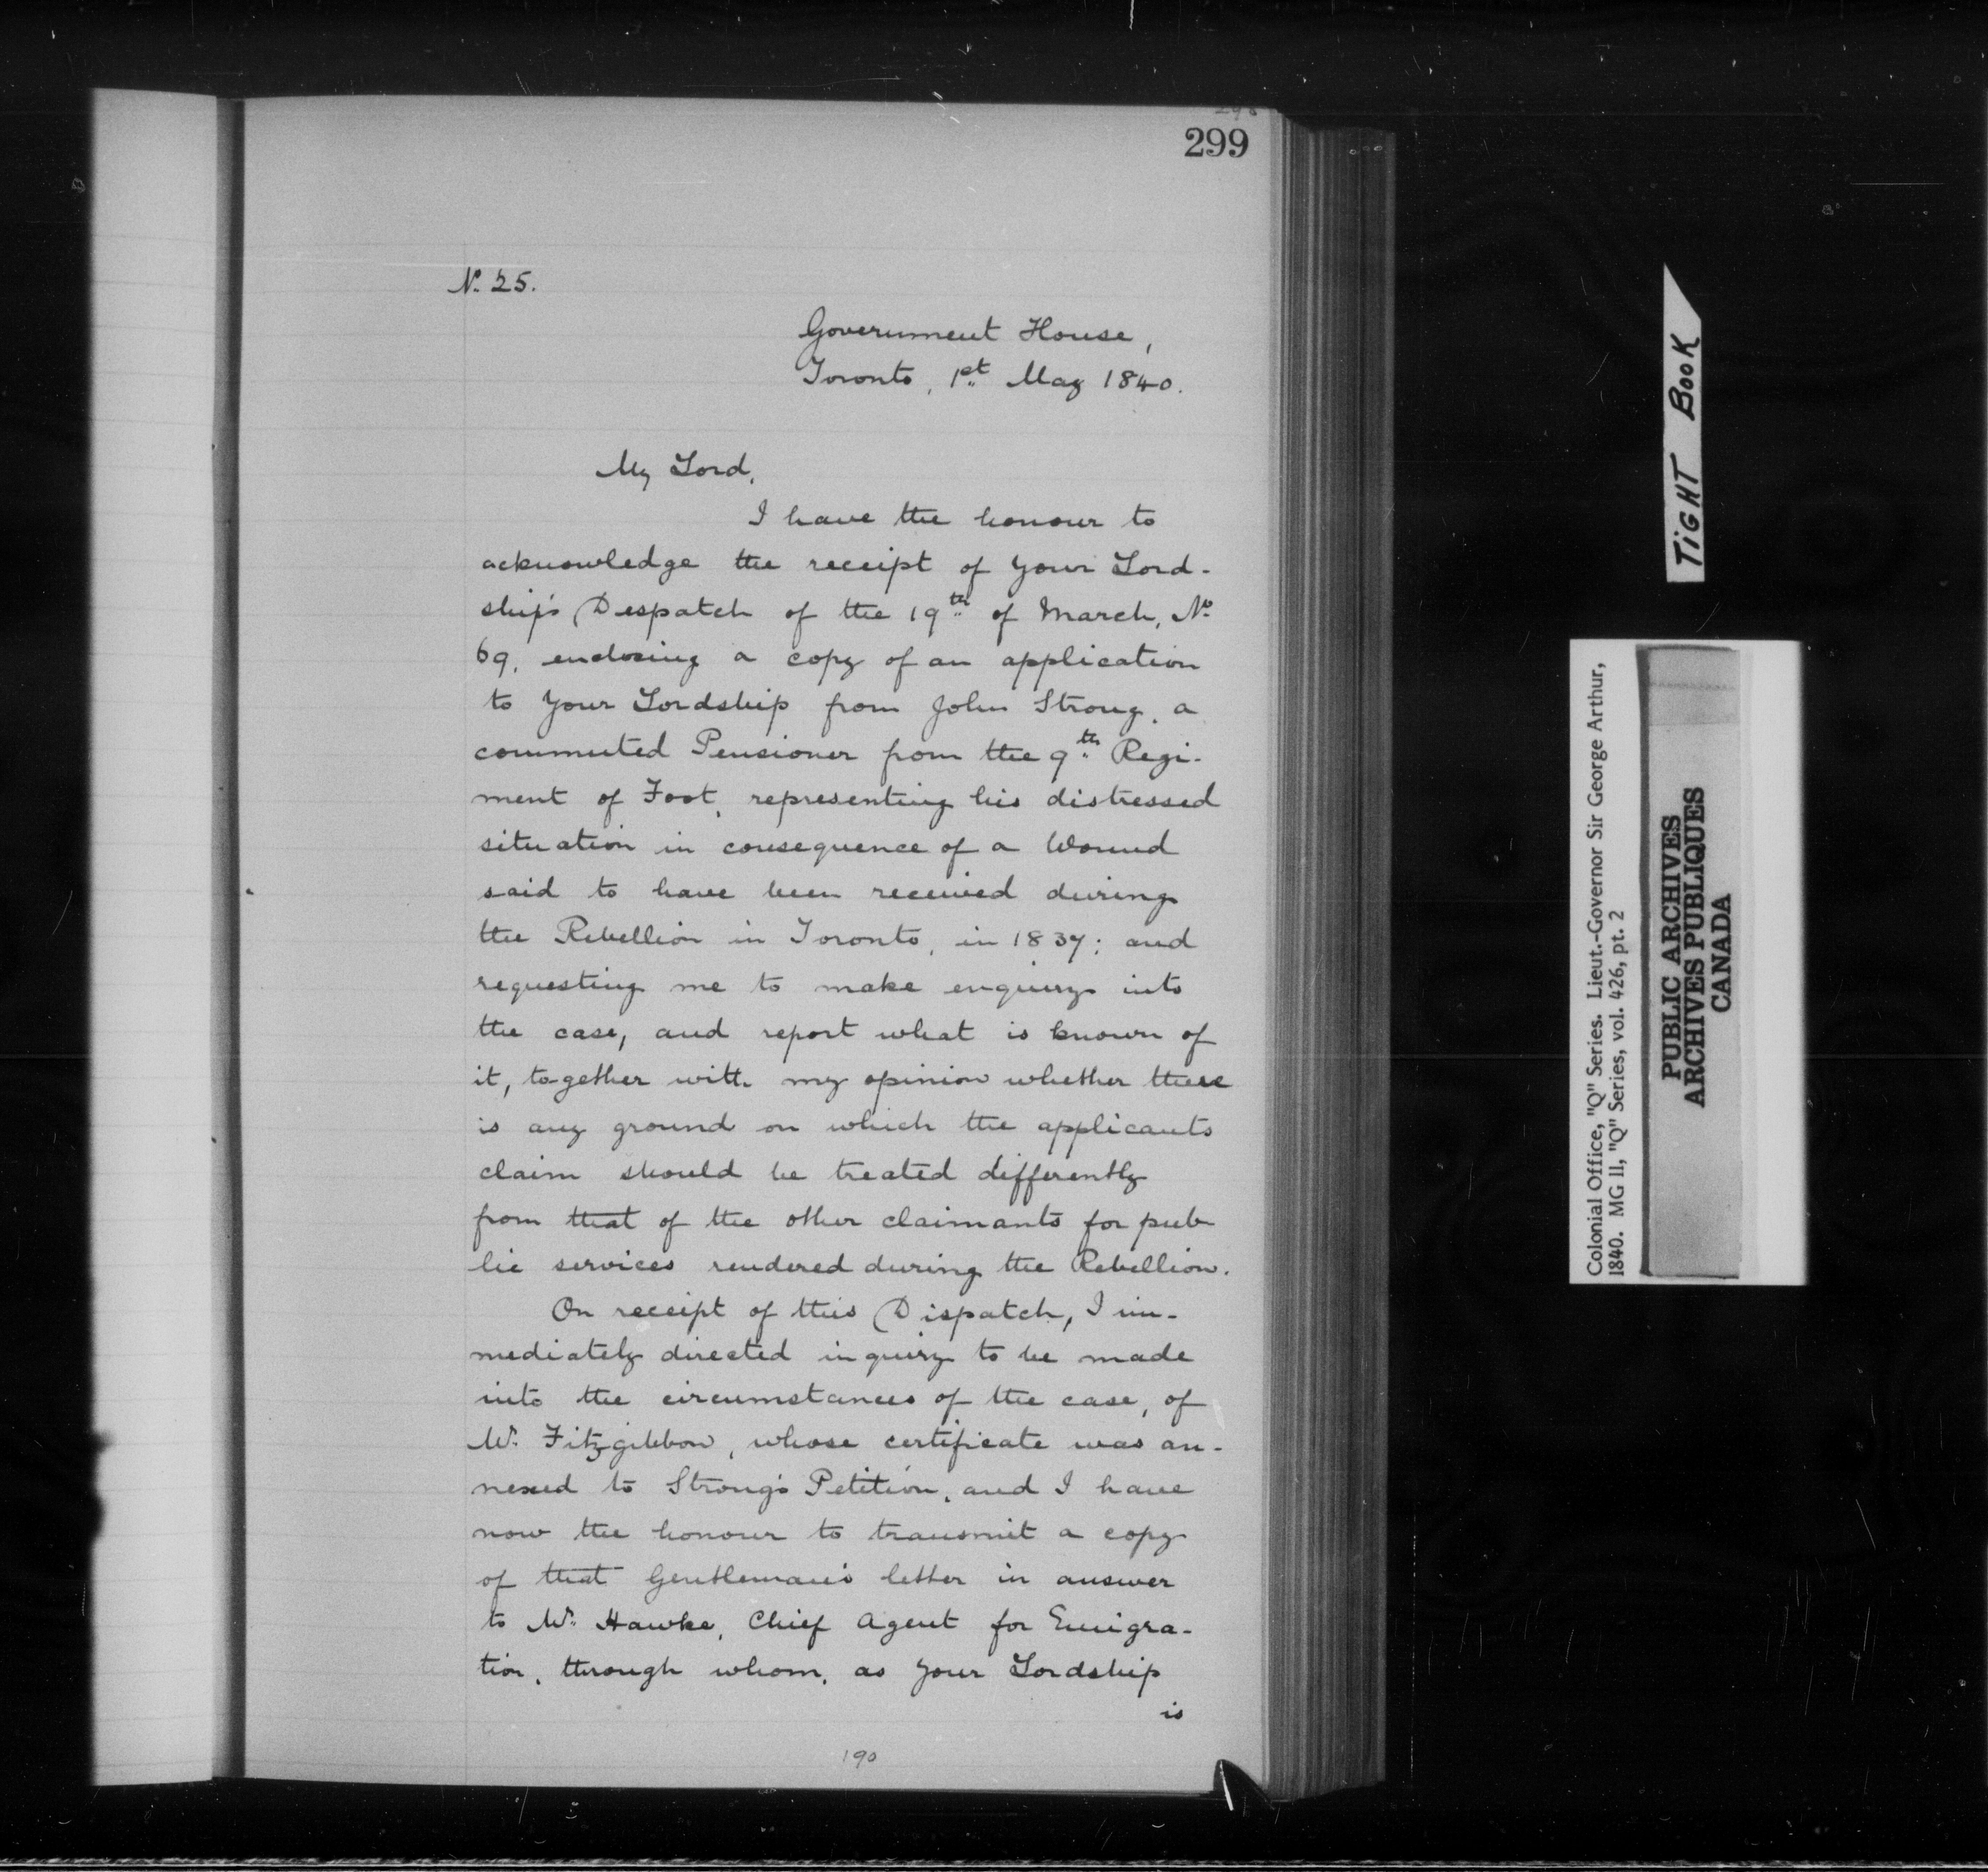 299
No. 25.
Government House,
Toronto, 1st May 1840.
My Lord,
I have the honour to
acknowledge the receipt of Your Lord-
ship's Despatch of the 19th of March, No.
69, enclosing a copy of an application
to Your Lordship from John Strong, a
commuted Pensioner from the 9th Regi-
ment of Foot, representing his distressed
situation in consequence of a Wound
said to have been received during
the Rebellion in Toronto, in 1837; and
requesting me to make enquiry into
the case, and report what is known of
it, together with my opinion whether there
is any ground on which the applicants
claim should be treated differently
from that of the other claimants for pub-
lic services rendered during the Rebellion.
On receipt of this Dispatch, I im-
mediately directed inquiry to be made
into the circumstances of the case, of
Mr. Fitzgibbon, whose certificate was an-
nexed to Strong's Petition, and I have
now the honour to transmit a copy
of that Gentleman's letter in answer
to Mr. Hawke, Chief Agent for Emigra-
tion, through whom, as Your Lordship
is
190
TiGHT BOOK
Colonial Office, "Q" Series. Lieut.-Governor Sir George Arthur,
1840. MG 11, "Q" Series, vol. 426, pt. 2
PUBLIC ARCHIVES
ARCHIVES PUBLIQUES
CANADA